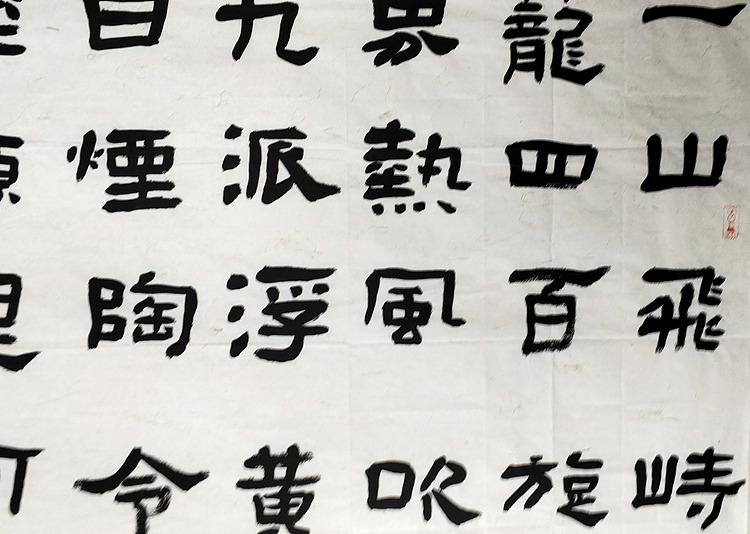 一山飛峙
蘢四百旋
界熱風吹
九派浮黄
白煙陶令